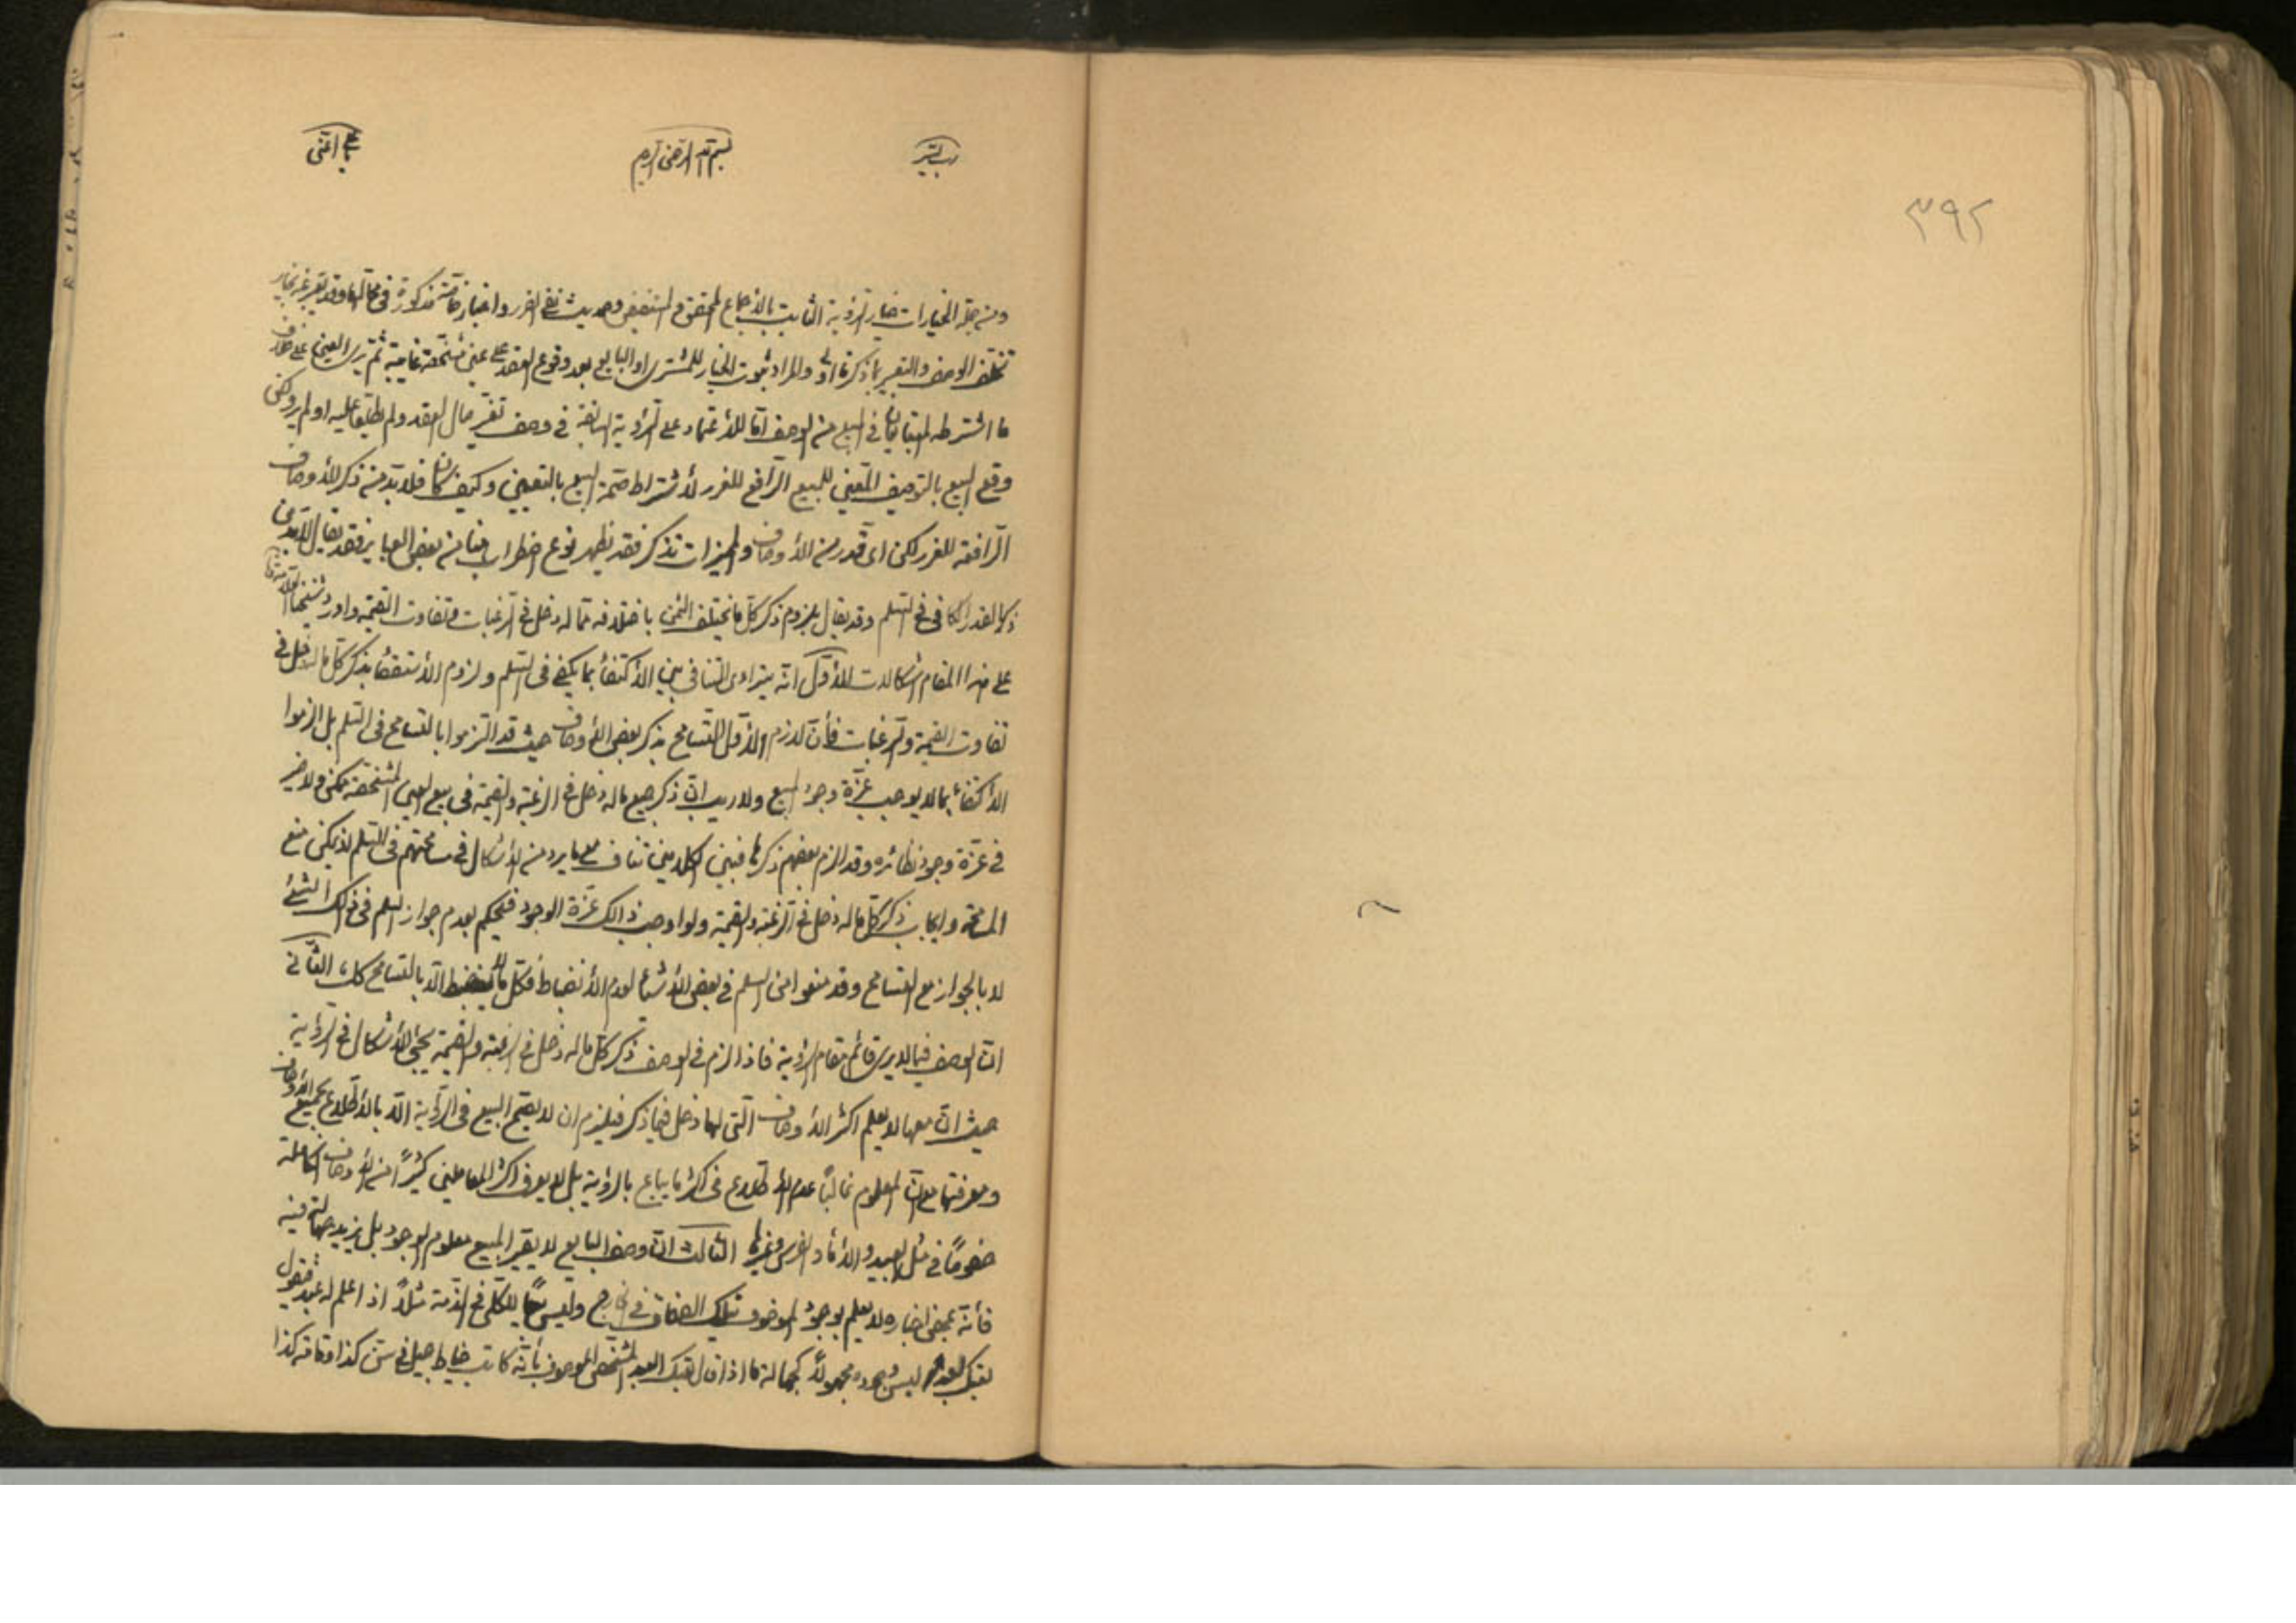 ٣٩٢
رب يسر بسم الله الرحمن الرحيم يا علي اعنى
ومن جملة الخيارات خيار الرؤية الثابت بالاجماع المحقق والمستفيض وحديث نفي الضرر واخبار خاصة مذكورة في محالها وقد يعبر عنه بخيار
تخلف الوصف والتعبير بما ذكرنا اولى والمراد ثبوت الخيار للمشترى او البايع بعد وقوع العقد على عين مشخصة غايبة ثم يرى العين على خلاف
ما اشترطه المتبايعان في المبيع من الوصف اما للاعتماد على الرؤية السابقة في وصف تغير حال العقد ولم يطلعا عليه او لم ير ولكن
وقع البيع بالتوصيف المعين للمبيع الرافع للغرر لاشتراط صحة البيع بالتعيين وكيف كان فلا بد من ذكر الاوصاف
الرافعة للغرر لكن اى قدر من الاوصاف والمميزات تذكر فقد يظهر نوع اضطراب هنا من بعض العباير فقد يقال اللازم
ذكر القدر الكافى في السلم وقد يقال بلزوم ذكر كل ما يختلف الثمن باختلافه مما له دخل في الرغبات وتفاوت القيمة واورد شيخنا
على هذا المقام اشكالات الاول انه يترا اى التنافى بين الاكتفاء بما يكفى في السلم ولزوم الاستقصاء بذكر كل ما له دخل في
تفاوت القيمة والرغبات فأن لازم الاول التسامح بذكر بعض الاوصاف حيث قد التزموا بالتسامح في السلم بل الزموا
الاكتفاء بما لا يوجب عزة وجود المبيع ولا ريب ان ذكر جميع ما له دخل في الرغبة والقيمة في بيع العين المشخصة ممكن ولا ضير
في عزة وجود نظائره وقد الزم بعضهم ذكرها فبين الكلامين تناف مع ما يرد من الاشكال في مسامحتهم في السلم اذ يمكن منع
المسامحة وايجاب ذكر كل ما له دخل في الرغبة والقيمة ولو اوجب ذالك عزة الوجود فيحكم بعدم جواز السلم في ذلك الشئ
لا بالجواز مع التسامح وقد منعوا من السلم في بعض الاشياء لعدم الانضباط فكل ما لا ينضبط الا بالتسامح كك الثانى
ان الوصف فيما لا يرى قائم مقام الرؤية فاذا لزم في الوصف ذكر كل ما له دخل في الرغبة والقيمة يجئ الاشكال في الرؤية
حيث ان معها لا يعلم اكثر الاوصاف التى لها دخل فيما ذكر فيلزم ان لا يصح البيع في الرؤية الا بالاطلاع بجميع الاوصاف
ومعرفتها مع ان المعلوم غالبا عدم الاطلاع في اكثر ما يباع بالرؤية بل لا يعرف اكثر المتعاملين كثيرًا من الاوصاف الكاملة
خصوصًا في مثل العبيد والاماء والفرس وغيرها الثالث ان وصف البايع لا يصير المبيع معلوم الوجود بل يزيد جهالة فيه
فأنه بمحض اخباره لا يعلم بوجود الموصوف بتلك الصفات في الخارج وليس بيعًا للكلى في الذمة مثلًا اذا علم له عبد فيقول
بعتك العبد ليس وجوده مجهولًا كجهالة ما اذا قال بعتك العبد المشخص الموصوف بأنه كاتب خياط جميل في سن كذا وقامة كذا